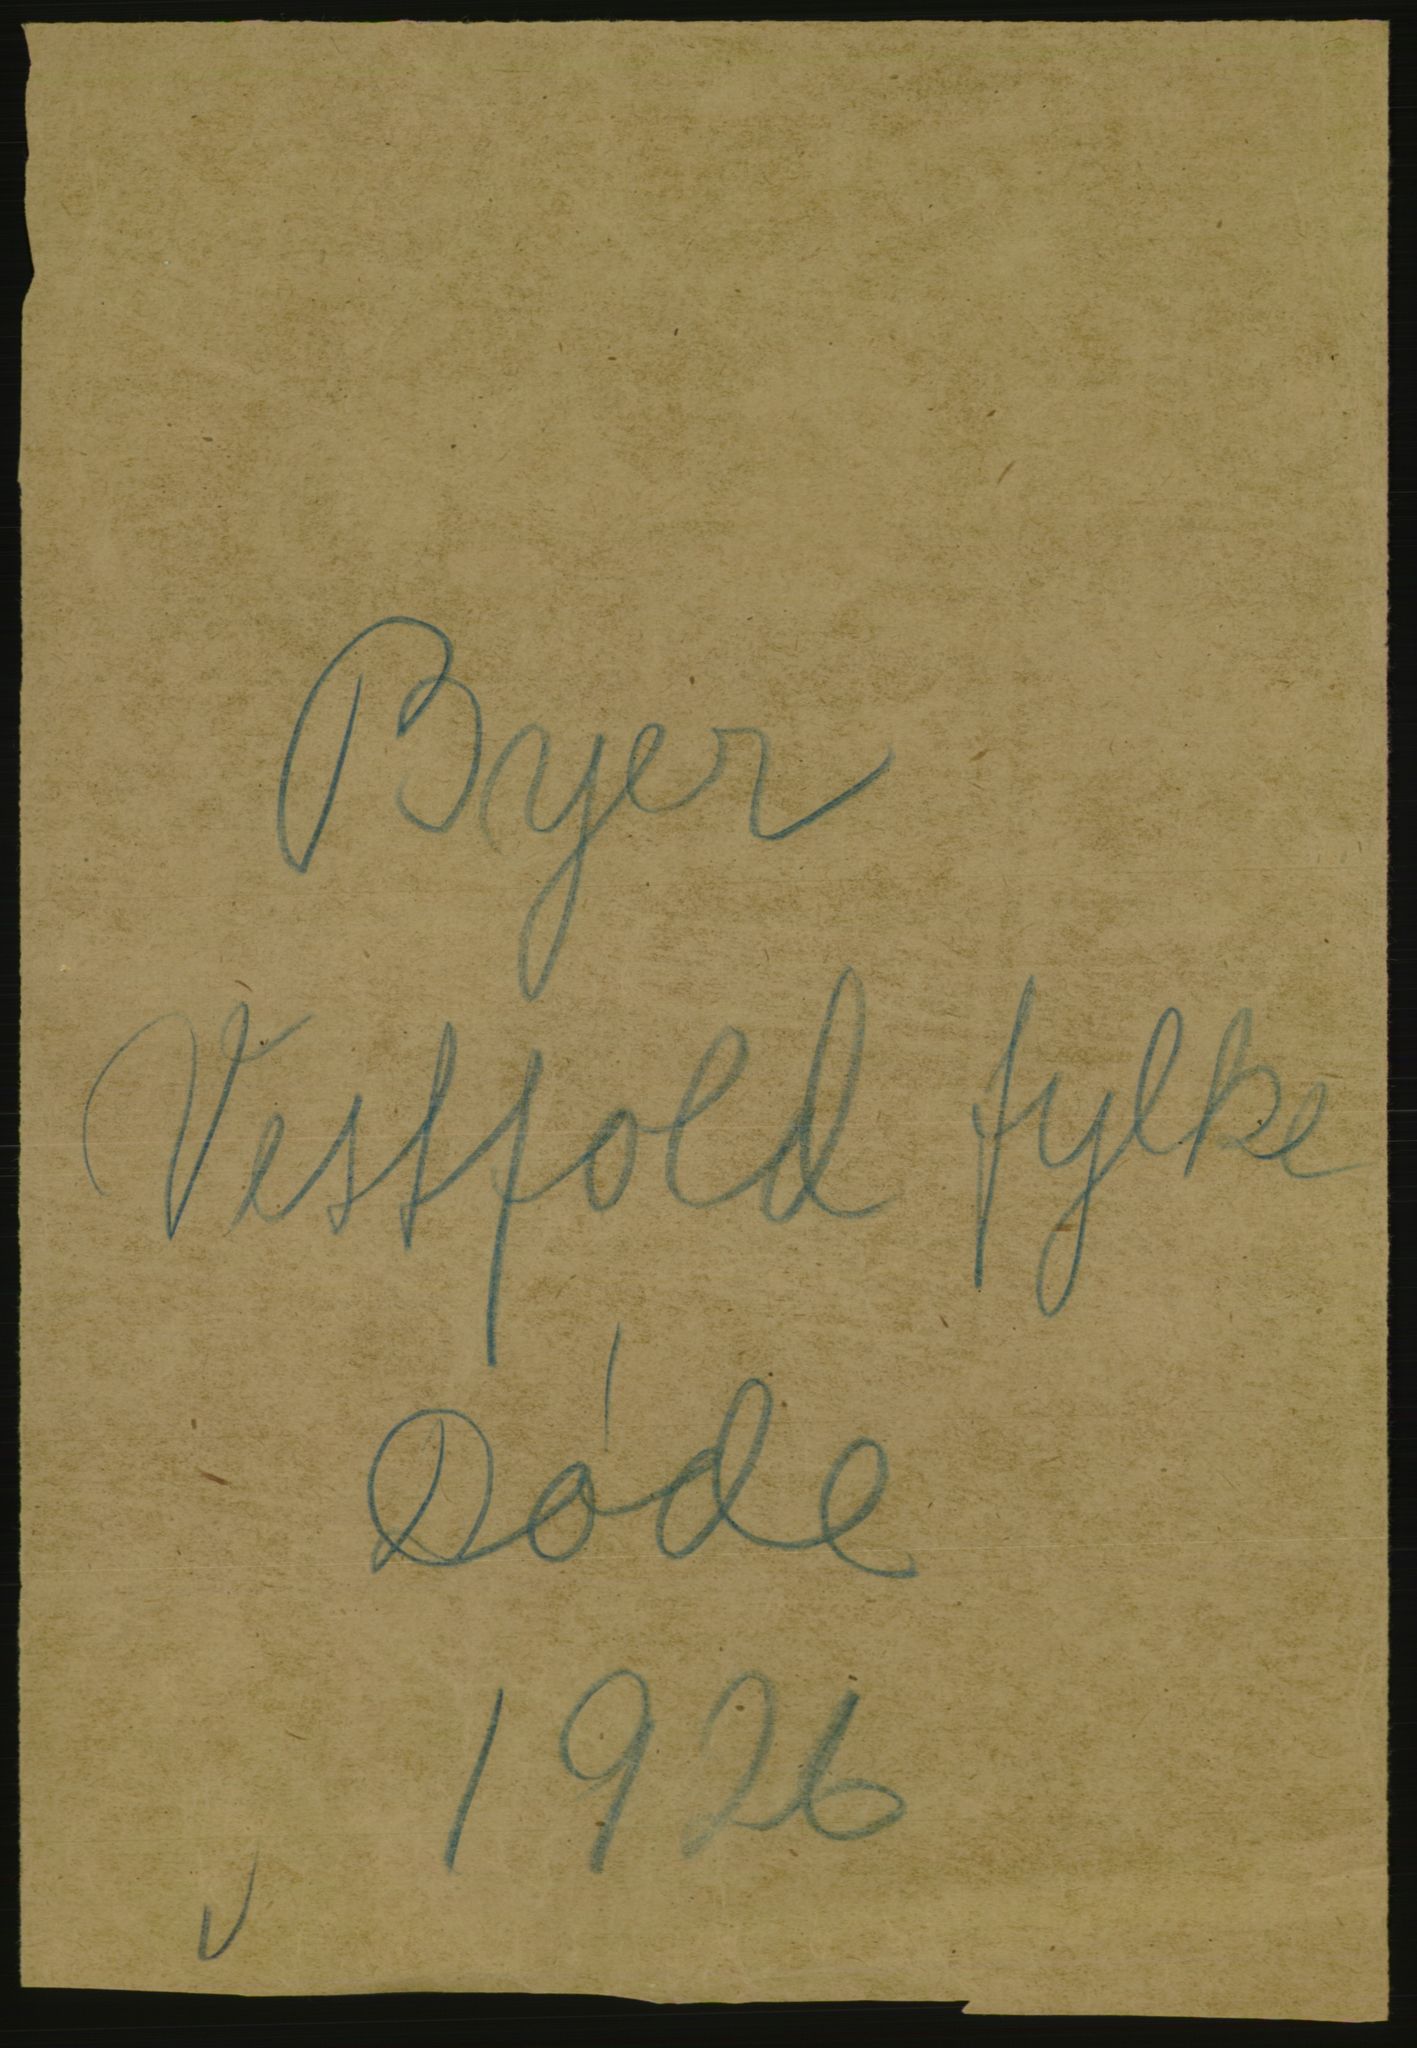 Byer
Vestfold fylke
Døde
1926